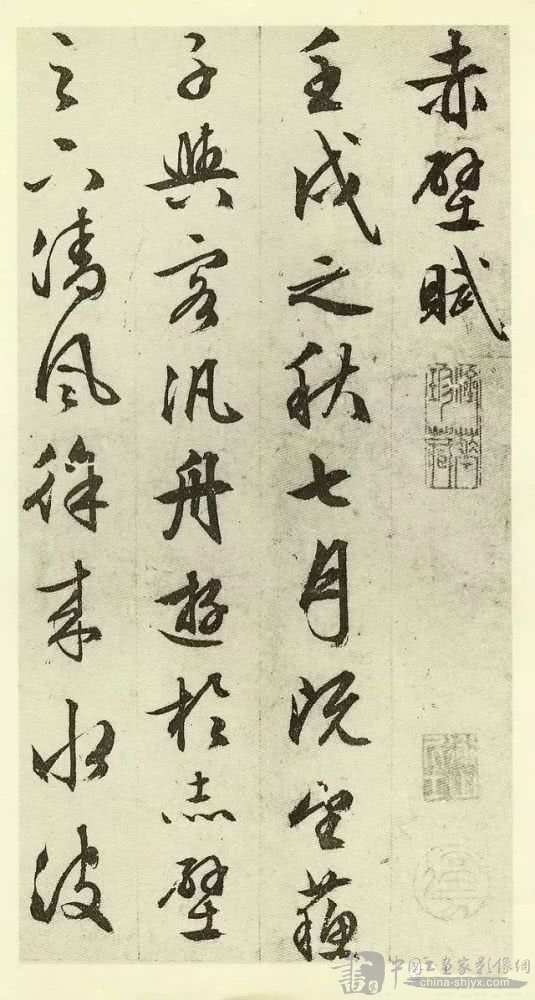 赤壁賦
壬戌之秋七月既望蘇
子與客汎舟遊於赤壁
之下清風徐來水波
中國书画家影像網
china-shjyx.com